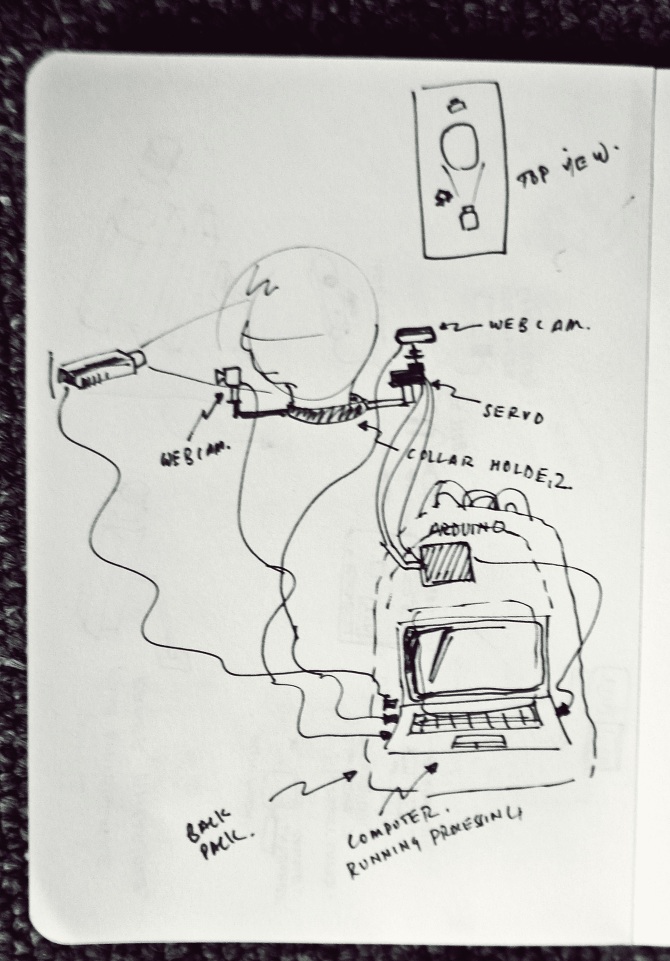 TOP VIEW.
WEBCAM.
SERVO
WEBCAM.
COLLAR HOLDER.
ARDUINO
BACK
PACK.
COMPUTER.
RUNNING PROCESSING